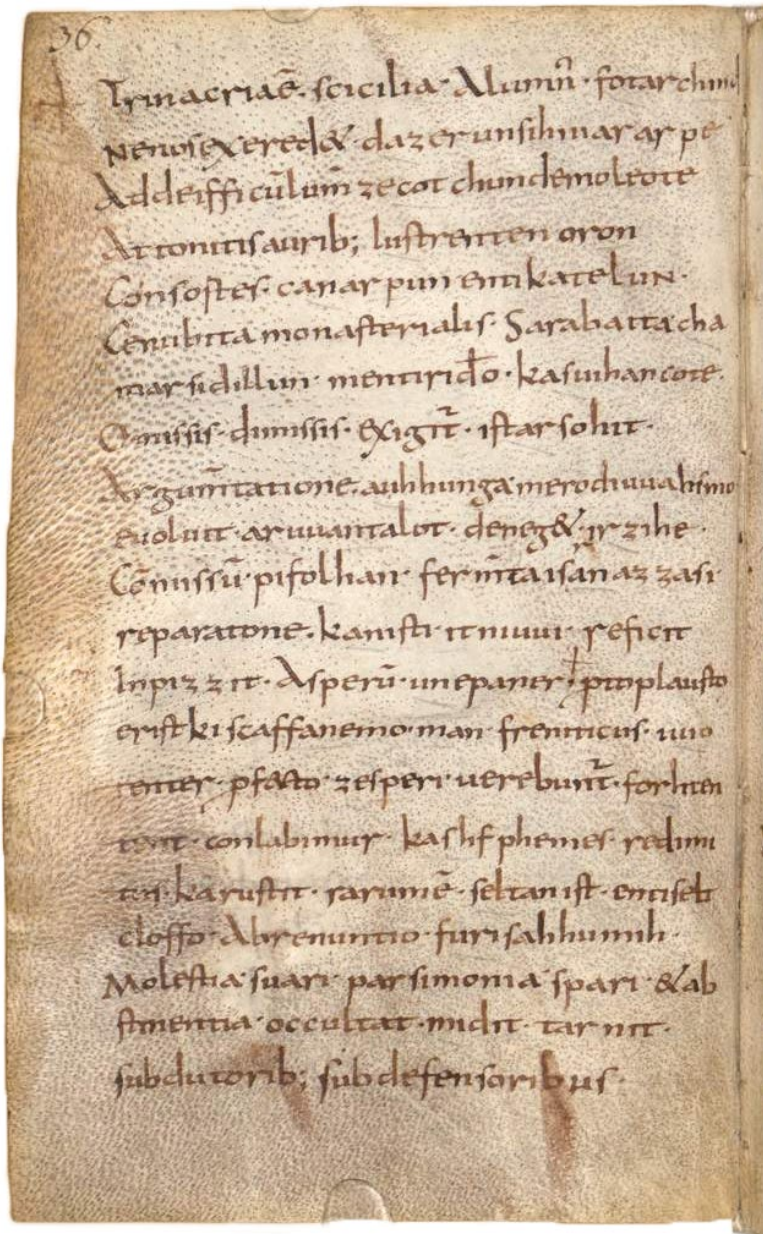 36
Trinacria ē. scicilia. Alumn̄. fotarchind
Nenos exered&. dazerunsihniarar pe
Addeifficūlum̄ zecot chundemoleote
Attonitis aurib; lustrenten oron
Consostes. canarpun enti kate lun.
Cenubita monasterialis. Sarabaita cha
mar sidillun. mentiri d̄o. kasuihan cote.
Omissis. dimissis. exigit̄. istarsohit.
Argum̄tatione. auhhungamero diuuahsmo
euoluit. aruuantalot. deneg&. irzihe.
Cōmissū. pifolhan. ferm̄ta isan azzasi
reparatone. kanisti. it niuui. reficit
Inpizzit. Asperū. unepaner. ptoplausto
erist kiscaffanemo. man. freniticus. uuo
tenter. pfecto. zesperi. uerebunt̄. forhten
tent. conlabimur. kaslifphemes. redimi
tus. karustit. rarum ē. seltan ist. enti selt
cloffo. Abrenuntio. fursahhumih.
Molestia suari. parsimonia spari. &ab
stinentia. occultat. midit. tarnit.
subdutorib; subdefensoribus.